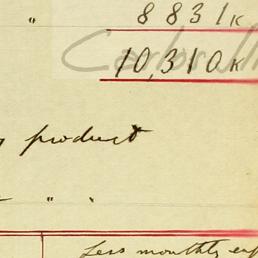 " 8831K
Carlos
10,310K
product
" "
Less monthly